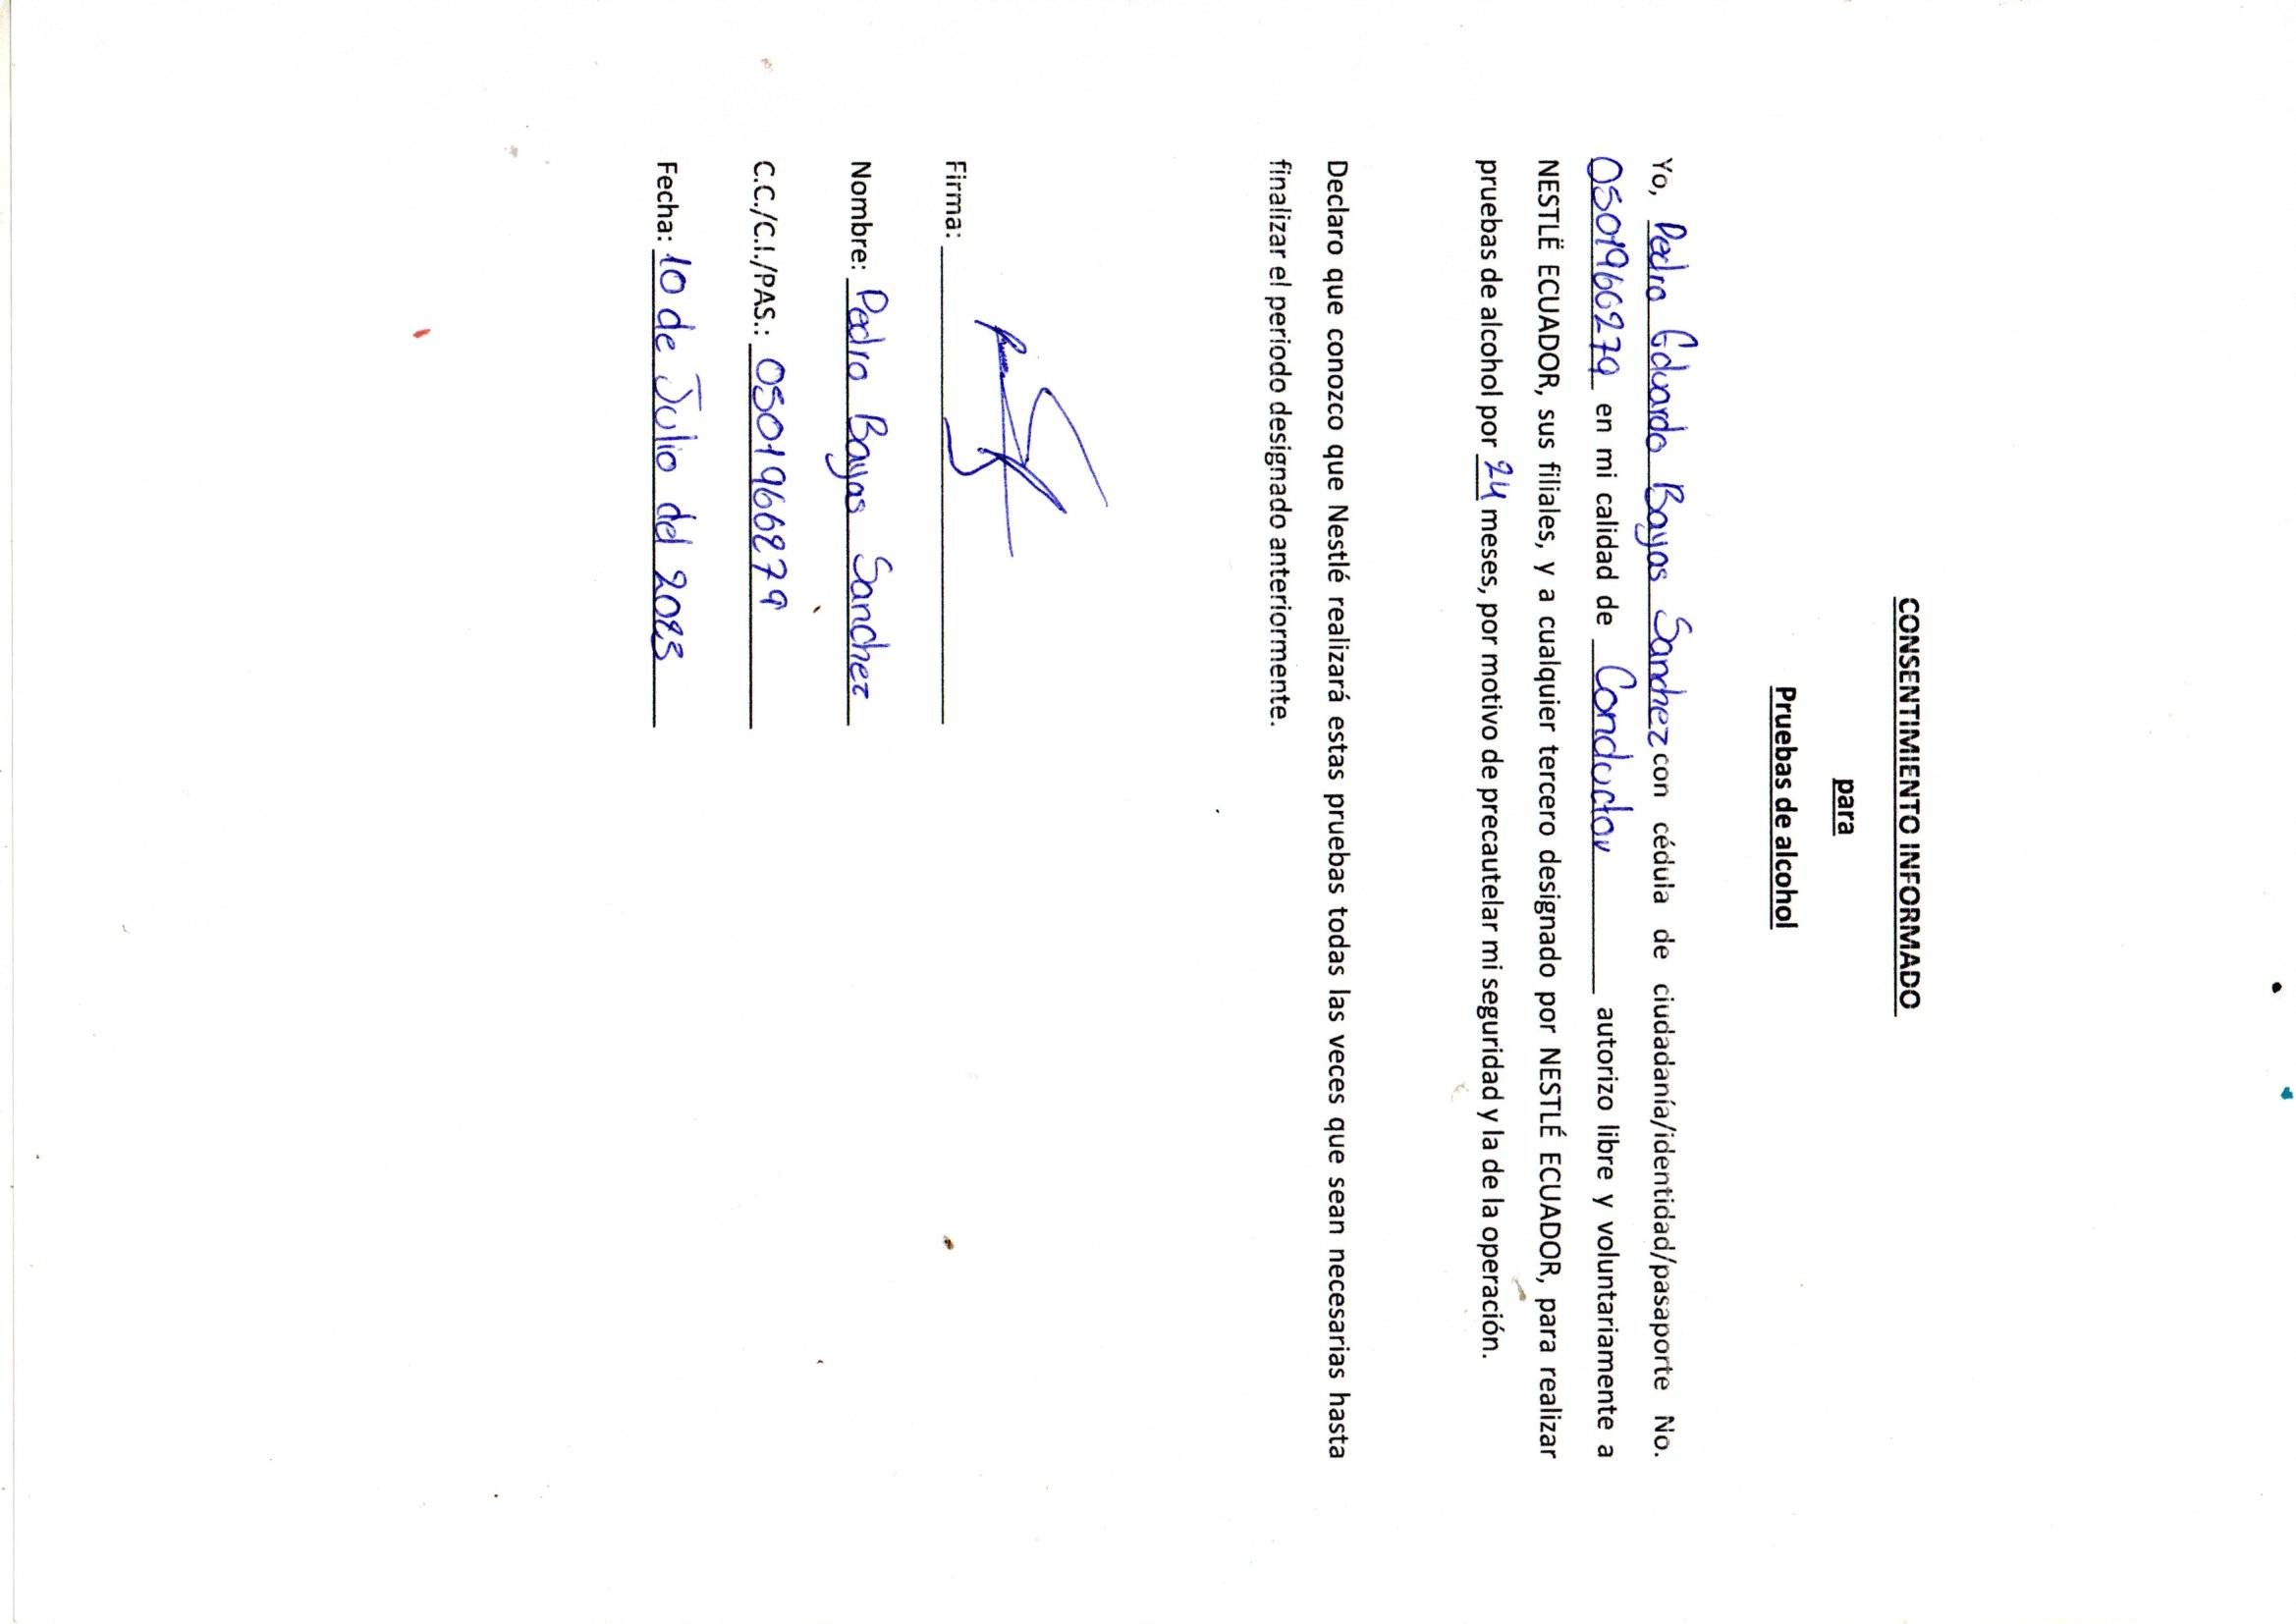 CONSENTIMIENTO INFORMADO
para
Pruebas de alcohol
Yo, Pedro Eduardo Bayas Sanchez con cédula de ciudadanía/identidad/pasaporte No.
0501966279 en mi calidad de Conductor autorizo libre y voluntariamente a
NESTLË ECUADOR, sus filiales, y a cualquier tercero designado por NESTLÉ ECUADOR, para realizar
pruebas de alcohol por 24 meses, por motivo de precautelar mi seguridad y la de la operación.
Declaro que conozco que Nestlé realizará estas pruebas todas las veces que sean necesarias hasta
finalizar el periodo designado anteriormente.
Firma:
Nombre: Pedro Bayas Sanchez
C.C./C.I./PAS.: 0501966279
Fecha: 10 de Julio del 2023